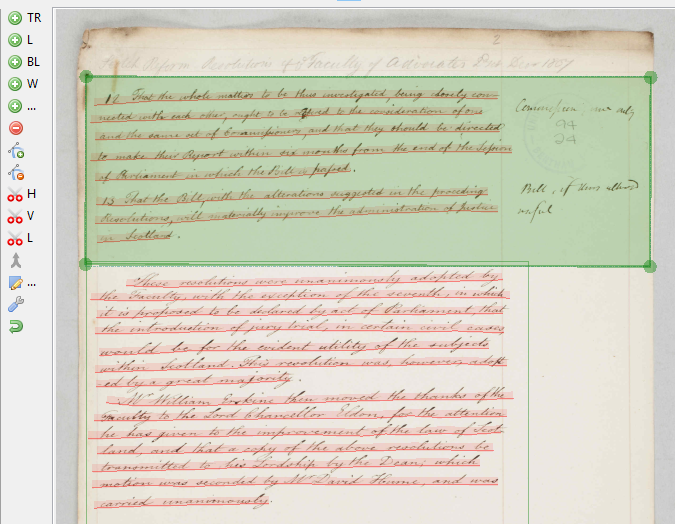 TR
L
BL
W
...
H
V
L
...
2
Resolutions of Faculty of Advocates 1807
12 That the whole matters to be thus investigated, being closely con-
nected with each other, ought to be referred to the consideration of one
and the same set of Commissioners, and that they should be directed
to make their Report within six months from the end of the Session
of Parliament in which the Bill is passed.
13 That the Bill, with the alterations suggested in the preceding
Resolutions, will materially improve the administration of Justice
in Scotland.
94
24
Bill, if thus altered
useful
These resolutions were unanimously adopted by
the Faculty, with the exception of the seventh, in which
it is proposed to be declared by act of Parliament, that
the introduction of jury trial, in certain civil cases
would be for the evident utility of the subjects
within Scotland. This resolution was, however, adopt-
ed by a great majority.
Mr William Erskine then moved the thanks of the
Faculty to the Lord Chancellor Eldon, for the attention
he has given to the improvement of the law of Scot
land, and that a copy of the above resolutions be
transmitted to his Lordship by the Dean; which
motion was seconded by Mr David Hume, and was
carried unanimously.